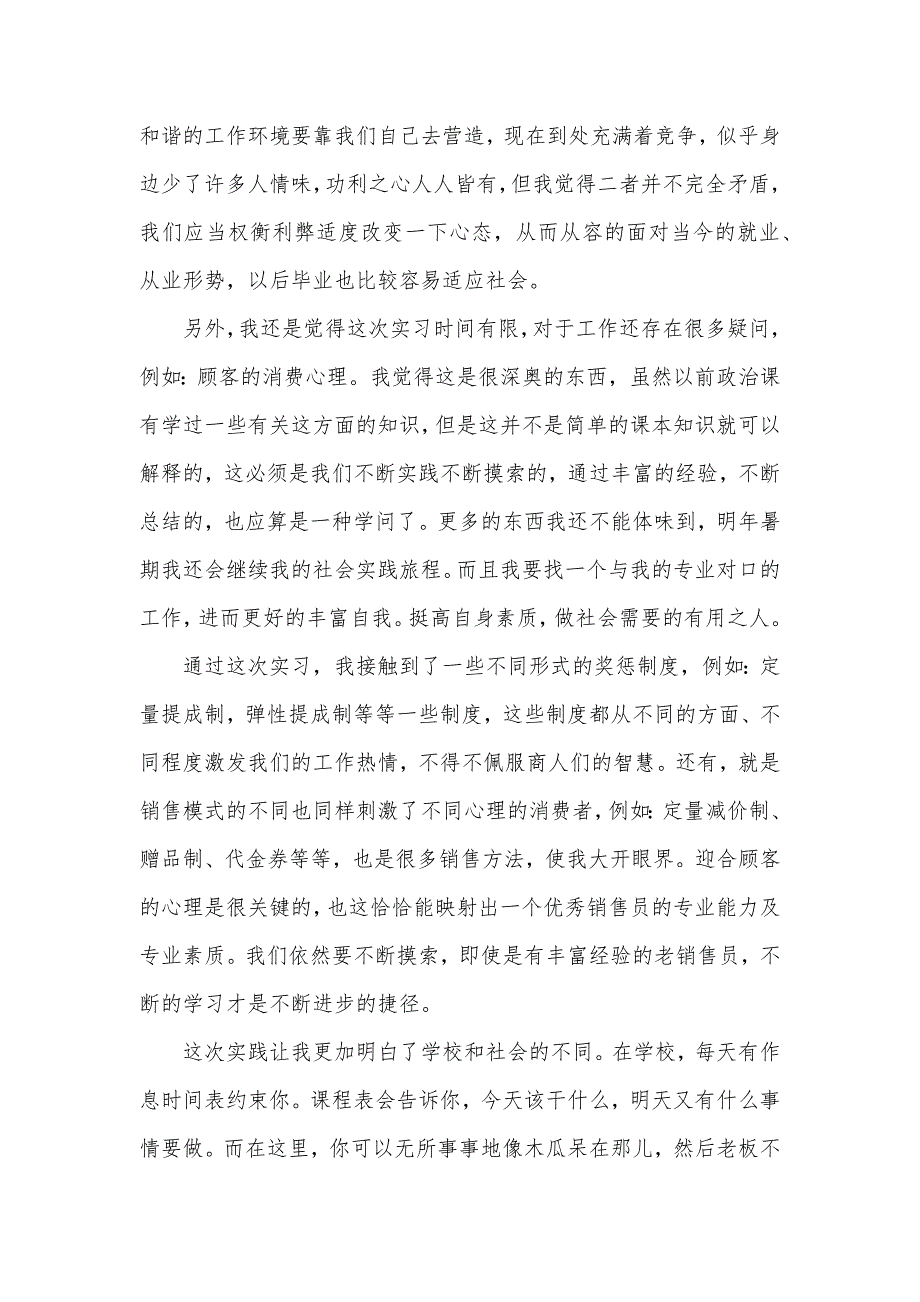 和谐的工作环境要靠我们自己去营造，现在到处充满着竞争，似乎身
边少了许多人情味，功利之心人人皆有，但我觉得二者并不完全矛盾，
我们应当权衡利弊适度改变一下心态，从而从容的面对当今的就业、
从业形势，以后毕业也比较容易适应社会。
另外，我还是觉得这次实习时间有限，对于工作还存在很多疑问，
例如：顾客的消费心理。我觉得这是很深奥的东西，虽然以前政治课
有学过一些有关这方面的知识，但是这并不是简单的课本知识就可以
解释的，这必须是我们不断实践不断摸索的，通过丰富的经验，不断
总结的，也应算是一种学问了。更多的东西我还不能体味到，明年暑
期我还会继续我的社会实践旅程。而且我要找一个与我的专业对口的
工作，进而更好的丰富自我。挺高自身素质，做社会需要的有用之人。
通过这次实习，我接触到了一些不同形式的奖惩制度，例如：定
量提成制，弹性提成制等等一些制度，这些制度都从不同的方面、不
同程度激发我们的工作热情，不得不佩服商人们的智慧。还有，就是
销售模式的不同也同样刺激了不同心理的消费者，例如：定量减价制、
赠品制、代金券等等，也是很多销售方法，使我大开眼界。迎合顾客
的心理是很关键的，也这恰恰能映射出一个优秀销售员的专业能力及
专业素质。我们依然要不断摸索，即使是有丰富经验的老销售员，不
断的学习才是不断进步的捷径。
这次实践让我更加明白了学校和社会的不同。在学校，每天有作
息时间表约束你。课程表会告诉你，今天该干什么，明天又有什么事
情要做。而在这里，你可以无所事事地像木瓜呆在那儿，然后老板不